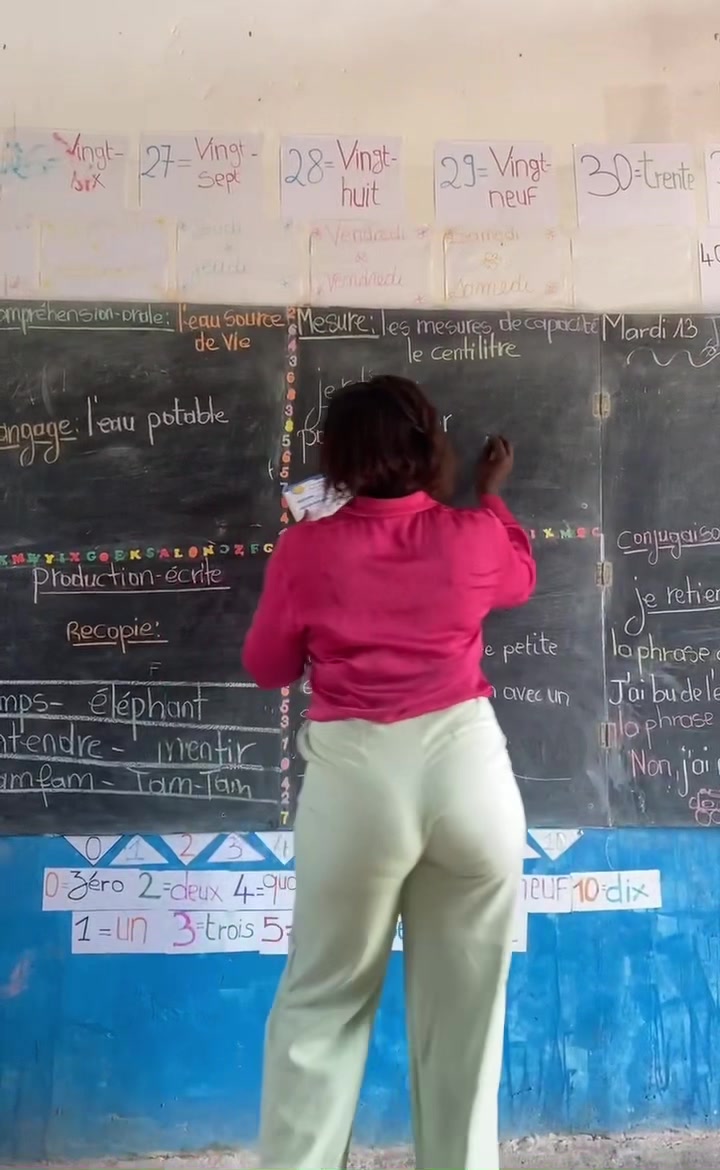 Vingt-
six
27= Vingt-
sept
28= Vingt-
huit
29= Vingt-
neuf
30=trente
40
jeudi
jeudi
Vendredi
Vendredi
Samedi
Samedi
ompréhension-orale: l'eau source
de vie
angage: l'eau potable
production-écrite
Recopie:
mps- éléphant
ntendre - mentir
amfam - Tam-Tam
Mesure: les mesures de capacité
le centilitre
r
e petite
avec un
Mardi 13 J
conjugaiso
je retien
la phrase
J'ai bu de l'e
la phrase
Non, j'ai
0 1 2 3 4 10
0=zéro 2=deux 4=qua neuf 10=dix
1=un 3=trois 5=